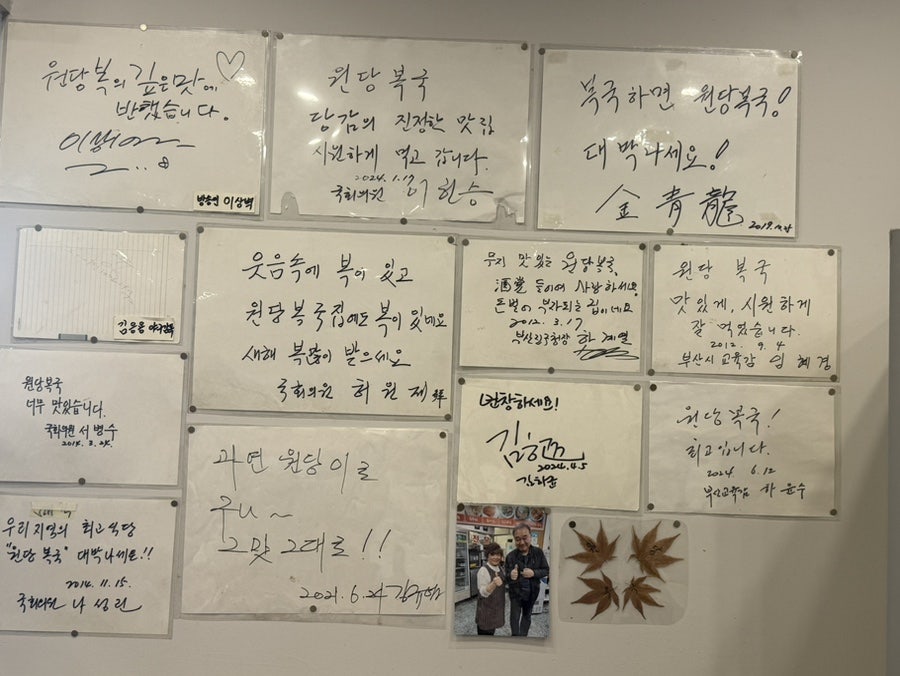 원당복의 깊은맛에
반했습니다.
방송인 이상벽
원당복국
당감의 진정한 맛집
시원하게 먹고 갑니다.
2024.1.17
국회의원 이헌승
복국하면 원당복국!
대박나세요!
金青龍
김응용 야구감독
웃음속에 복이 있고
원당복국집에도 복이 있네요
새해 복많이 받으세요
국회의원 허원제 拜
우리 맛있는 원당복국,
酒堂 들이여 사랑하세요!
돈벌어 부자되는 집이네요
2012.3.17
부산진구청장 하계열
원당 복국
맛있게, 시원하게
잘 먹었습니다.
2012. 9. 4
부산시교육감 임혜경
원당복국
너무 맛있습니다.
국회의원 서병수
번창하세요!
2024.4.5
원당 복국!
최고입니다.
2024 6.12
부산교육감 하윤수
과연 원당이로
구나~
그맛 그대로!!
2021.6.24
우리지역의 최고식당
"원당 복국" 대박나세요!!
2014.11.15.
국회의원 나성린